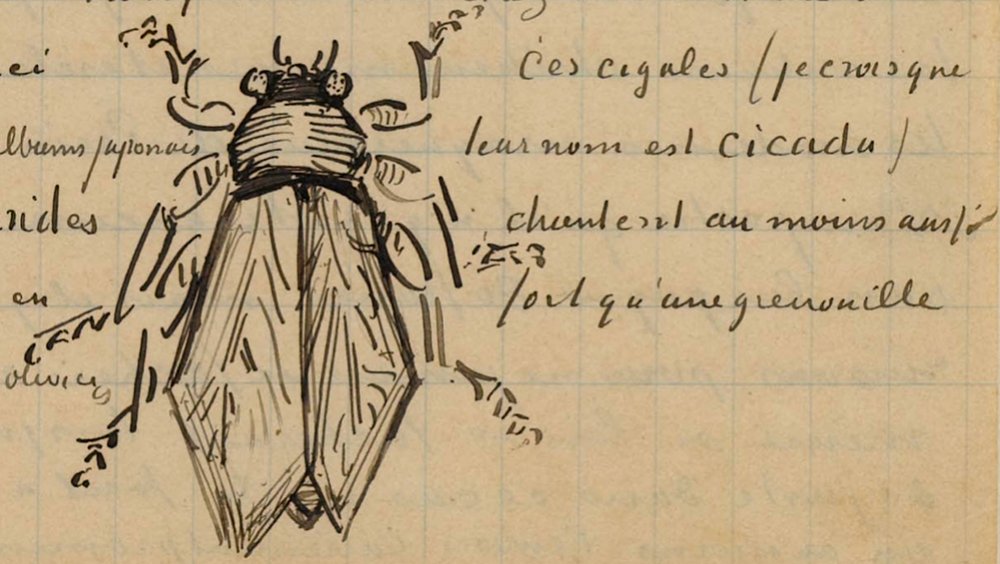 ei ces cigales (je crois que
albums japonais leur nom est cicada)
rides chantent au moins aussi
en fort qu'une grenouille
oliviers